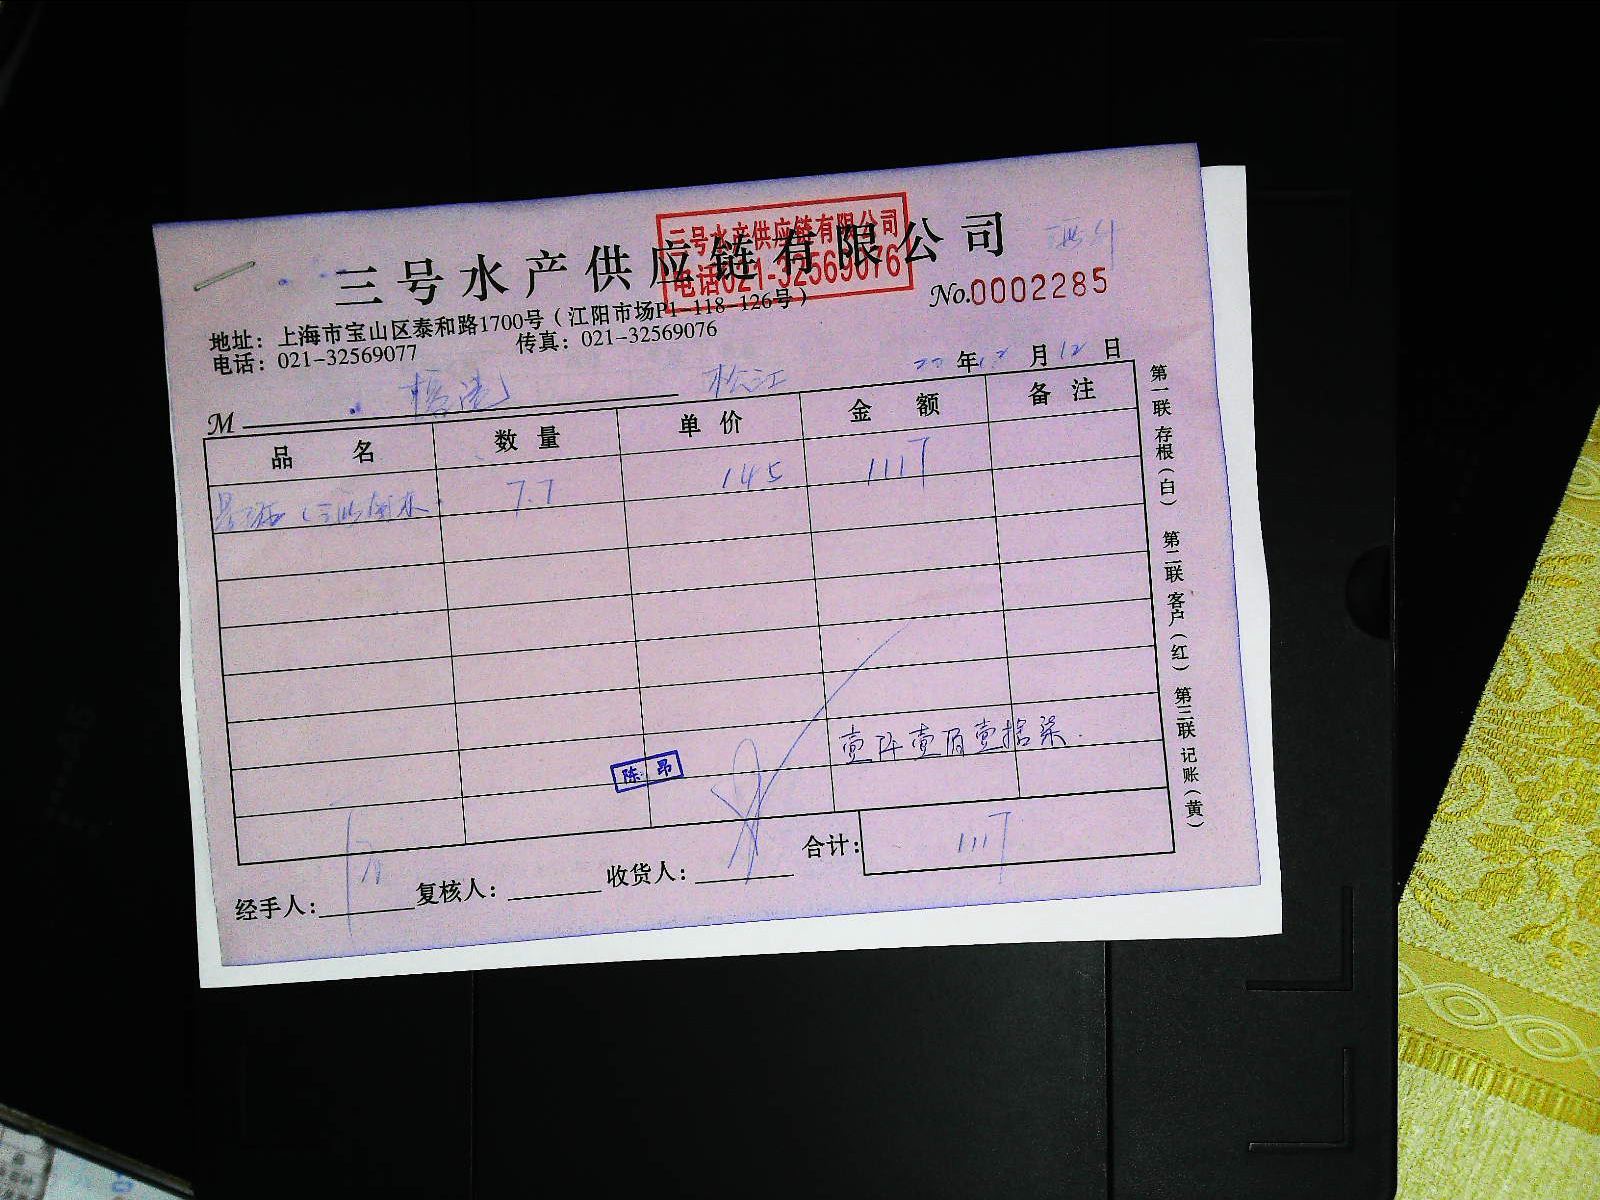 三号水产供应链有限公司
三号水产供应链有限公司
电话021-32569076
No.0002285
地址：上海市宝山区泰和路1700号（江阳市场P1-118-126号）
电话：021-32569077 传真：021-32569076
年12月12日
M 松江
品名 数量 单价 金额 备注
7.7 145 1117
壹阡壹佰壹拾柒.
陈昂
合计：1117
经手人： 复核人： 收货人：
第一联存根（白） 第二联客户（红） 第三联记账（黄）